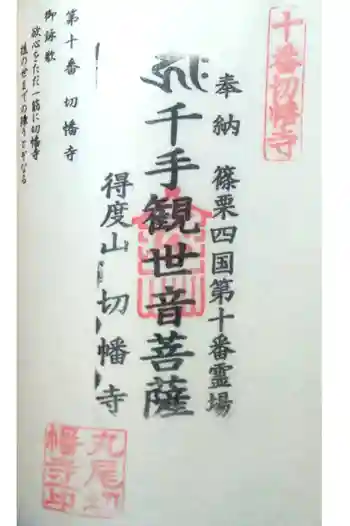 十番切幡寺
奉納 篠栗四国第十番霊場
千手観世音菩薩
得度山 切幡寺
第十番 切幡寺
御詠歌
欲心をただ一筋に切幡寺
後の世までの障りとぞなる
九尾切
幡寺印